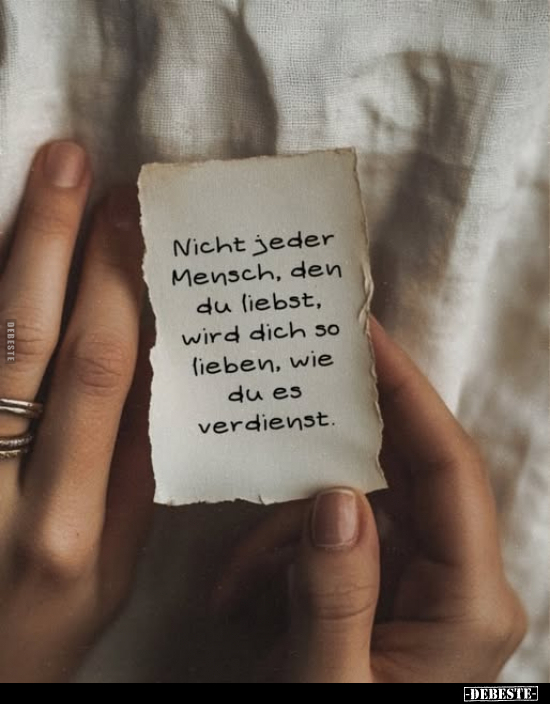 Nicht jeder
Mensch, den
du liebst,
wird dich so
lieben, wie
du es
verdienst.
DEBESTE
-DEBESTE-